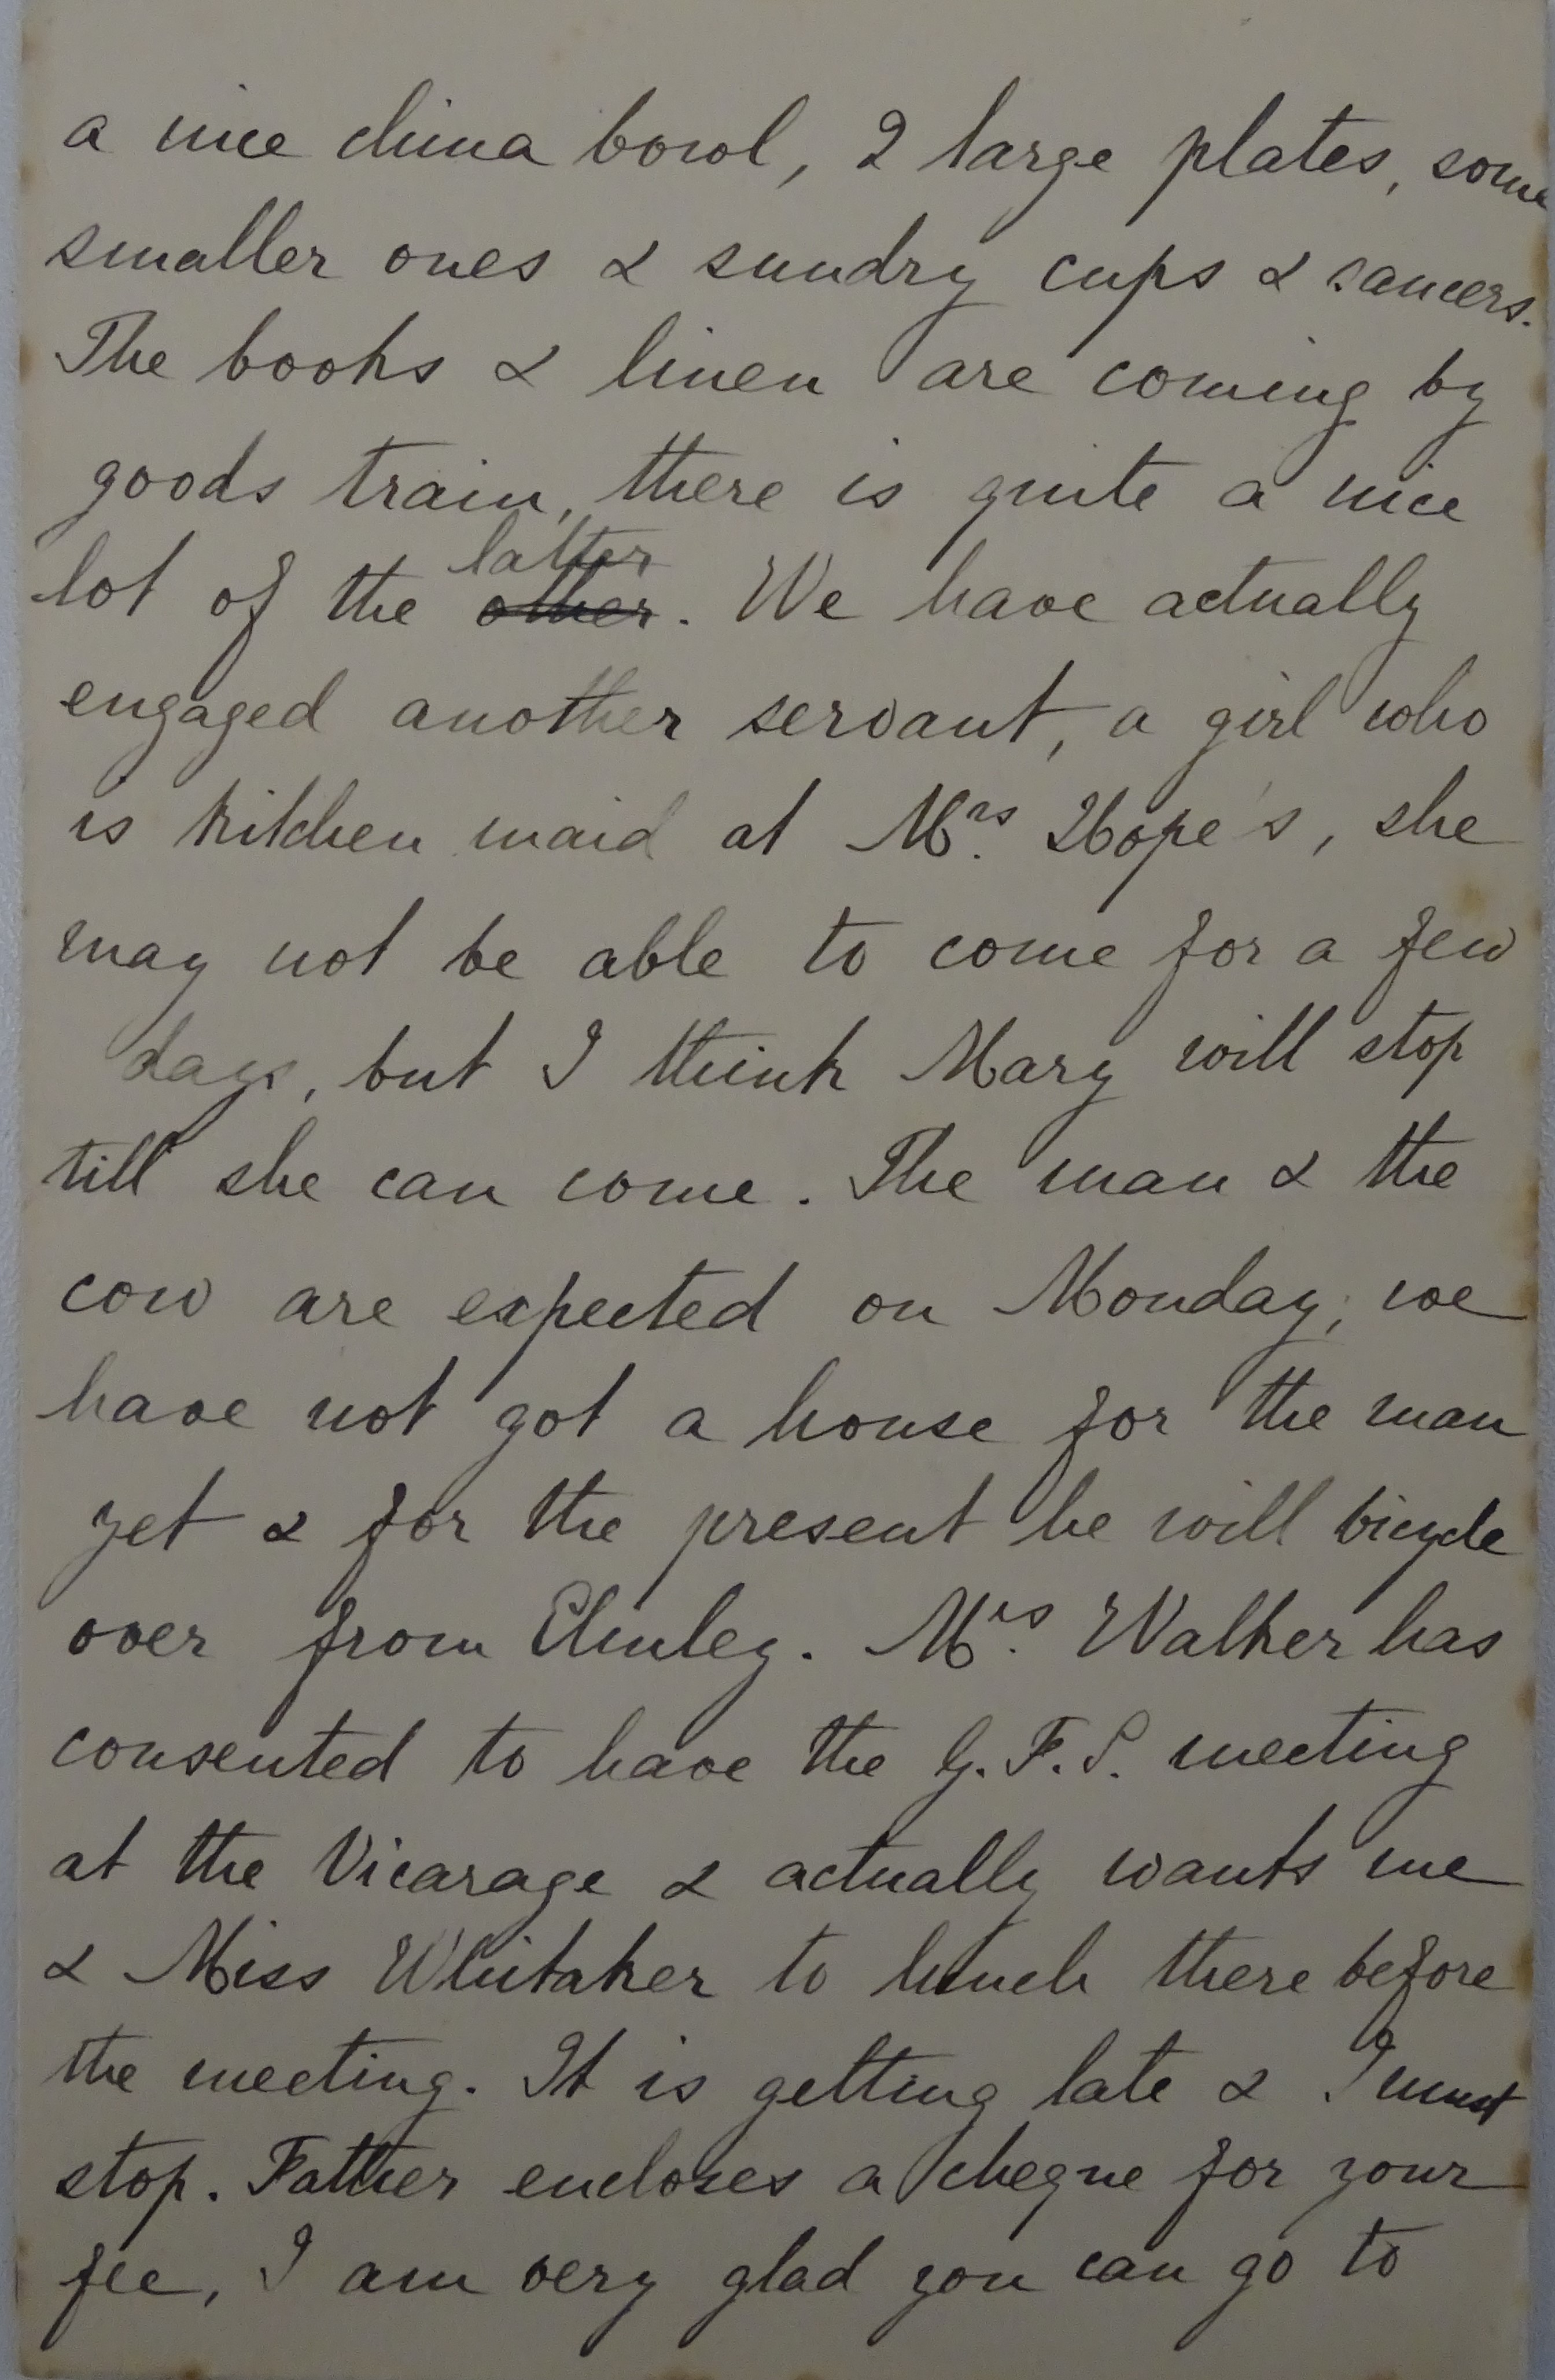 a nice china bowl, 2 large plates, some
smaller ones & sundry cups & saucers.
The books & linen are coming by
goods train, there is quite a nice
latter
lot of the other. We have actually
engaged another servant, a girl who
is kitchen maid at Mrs. Hope's, she
may not be able to come for a few
days, but I think Mary will stop
till she can come. The man & the
cow are expected on Monday, we
have not got a house for the man
yet & for the present he will bicycle
over from Elmley. Mrs. Walker has
consented to have the G.F.S. meeting
at the Vicarage & actually wants me
& Miss Whitaker to lunch there before
the meeting. It is getting late & I must
stop. Father encloses a cheque for your
fee, I am very glad you can go to